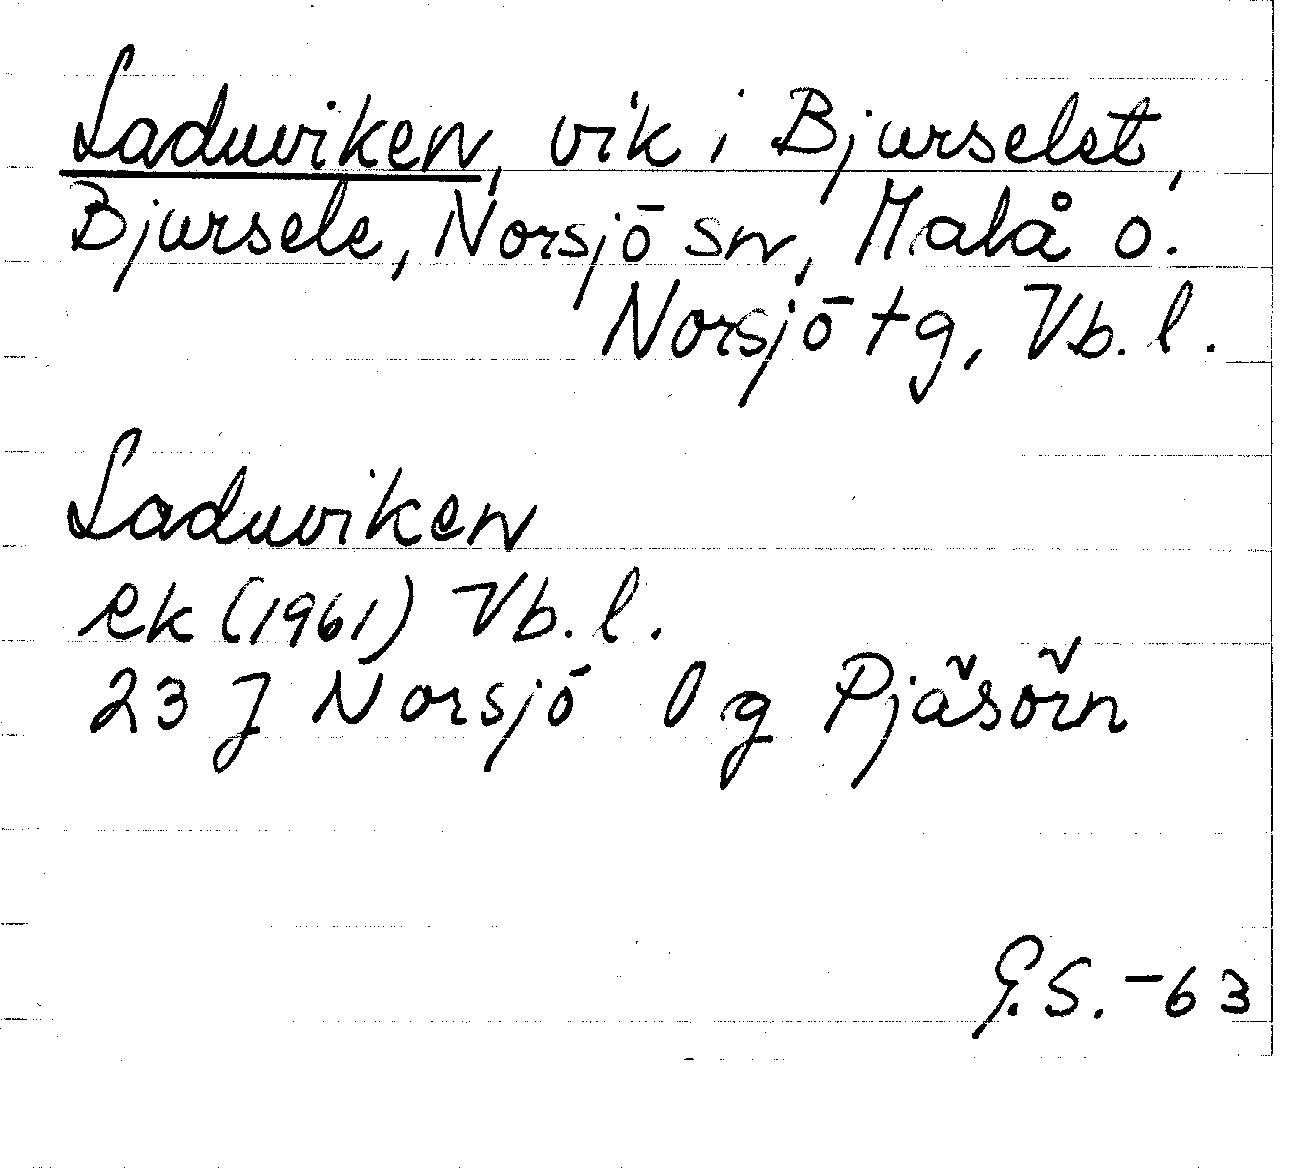 Laduviken, vik i Bjurselet,
Bjursele, Norsjö sn, Malå o.
Norsjö tg, Vb. l.
Laduviken
ek (1961) Vb. l.
23 J Norsjö 0 g Pjäsörn
G.S. -63